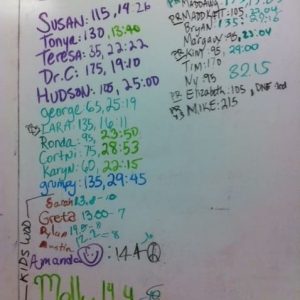 SUSAN: 115, 19:26
Tonye: 130, 13:40
Teresa: 35, 22:22
Dr. C: 175, 19:10
HUDSON: 105, 25:00
george: 65, 25:19
LARA: 135, 16:11
Ronda: 95, 23:50
Cortni: 75, 28:53
Karyn: 60, 22:15
grumpy: 135, 29:45
Sarah
Greta 13:00-7
Dylan
Austin 12:2-8
Amanda : 14:4
Molly 14:4
KIDS WOD
PR MADDKATT: 105, 23:04
Bryan: 135
Margaux: 95, 23:04
PR KIM: 95, 29:00
TIM: 170
NV: 95
8215
PR Elizabeth: 105, DNF
PR MIKE: 215